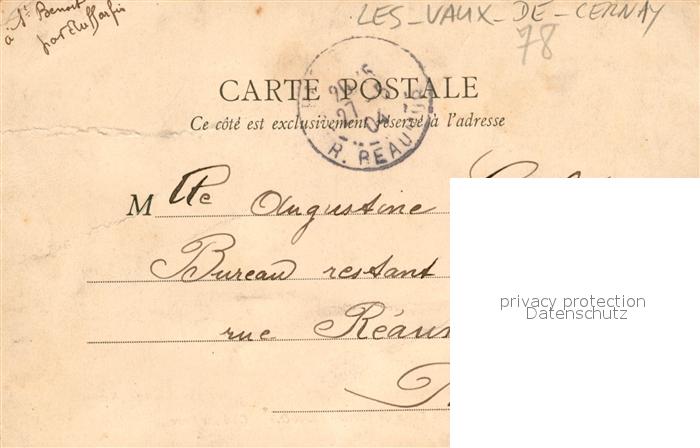 à St Benoist
par Auffargis
LES-VAUX-DE-CERNAY
78
CARTE POSTALE
Ce côté est exclusivement réservé à l'adresse
27
04
R. REAUMUR
Mlle Augustine
Bureau restant
rue Réaum
privacy protection
Datenschutz